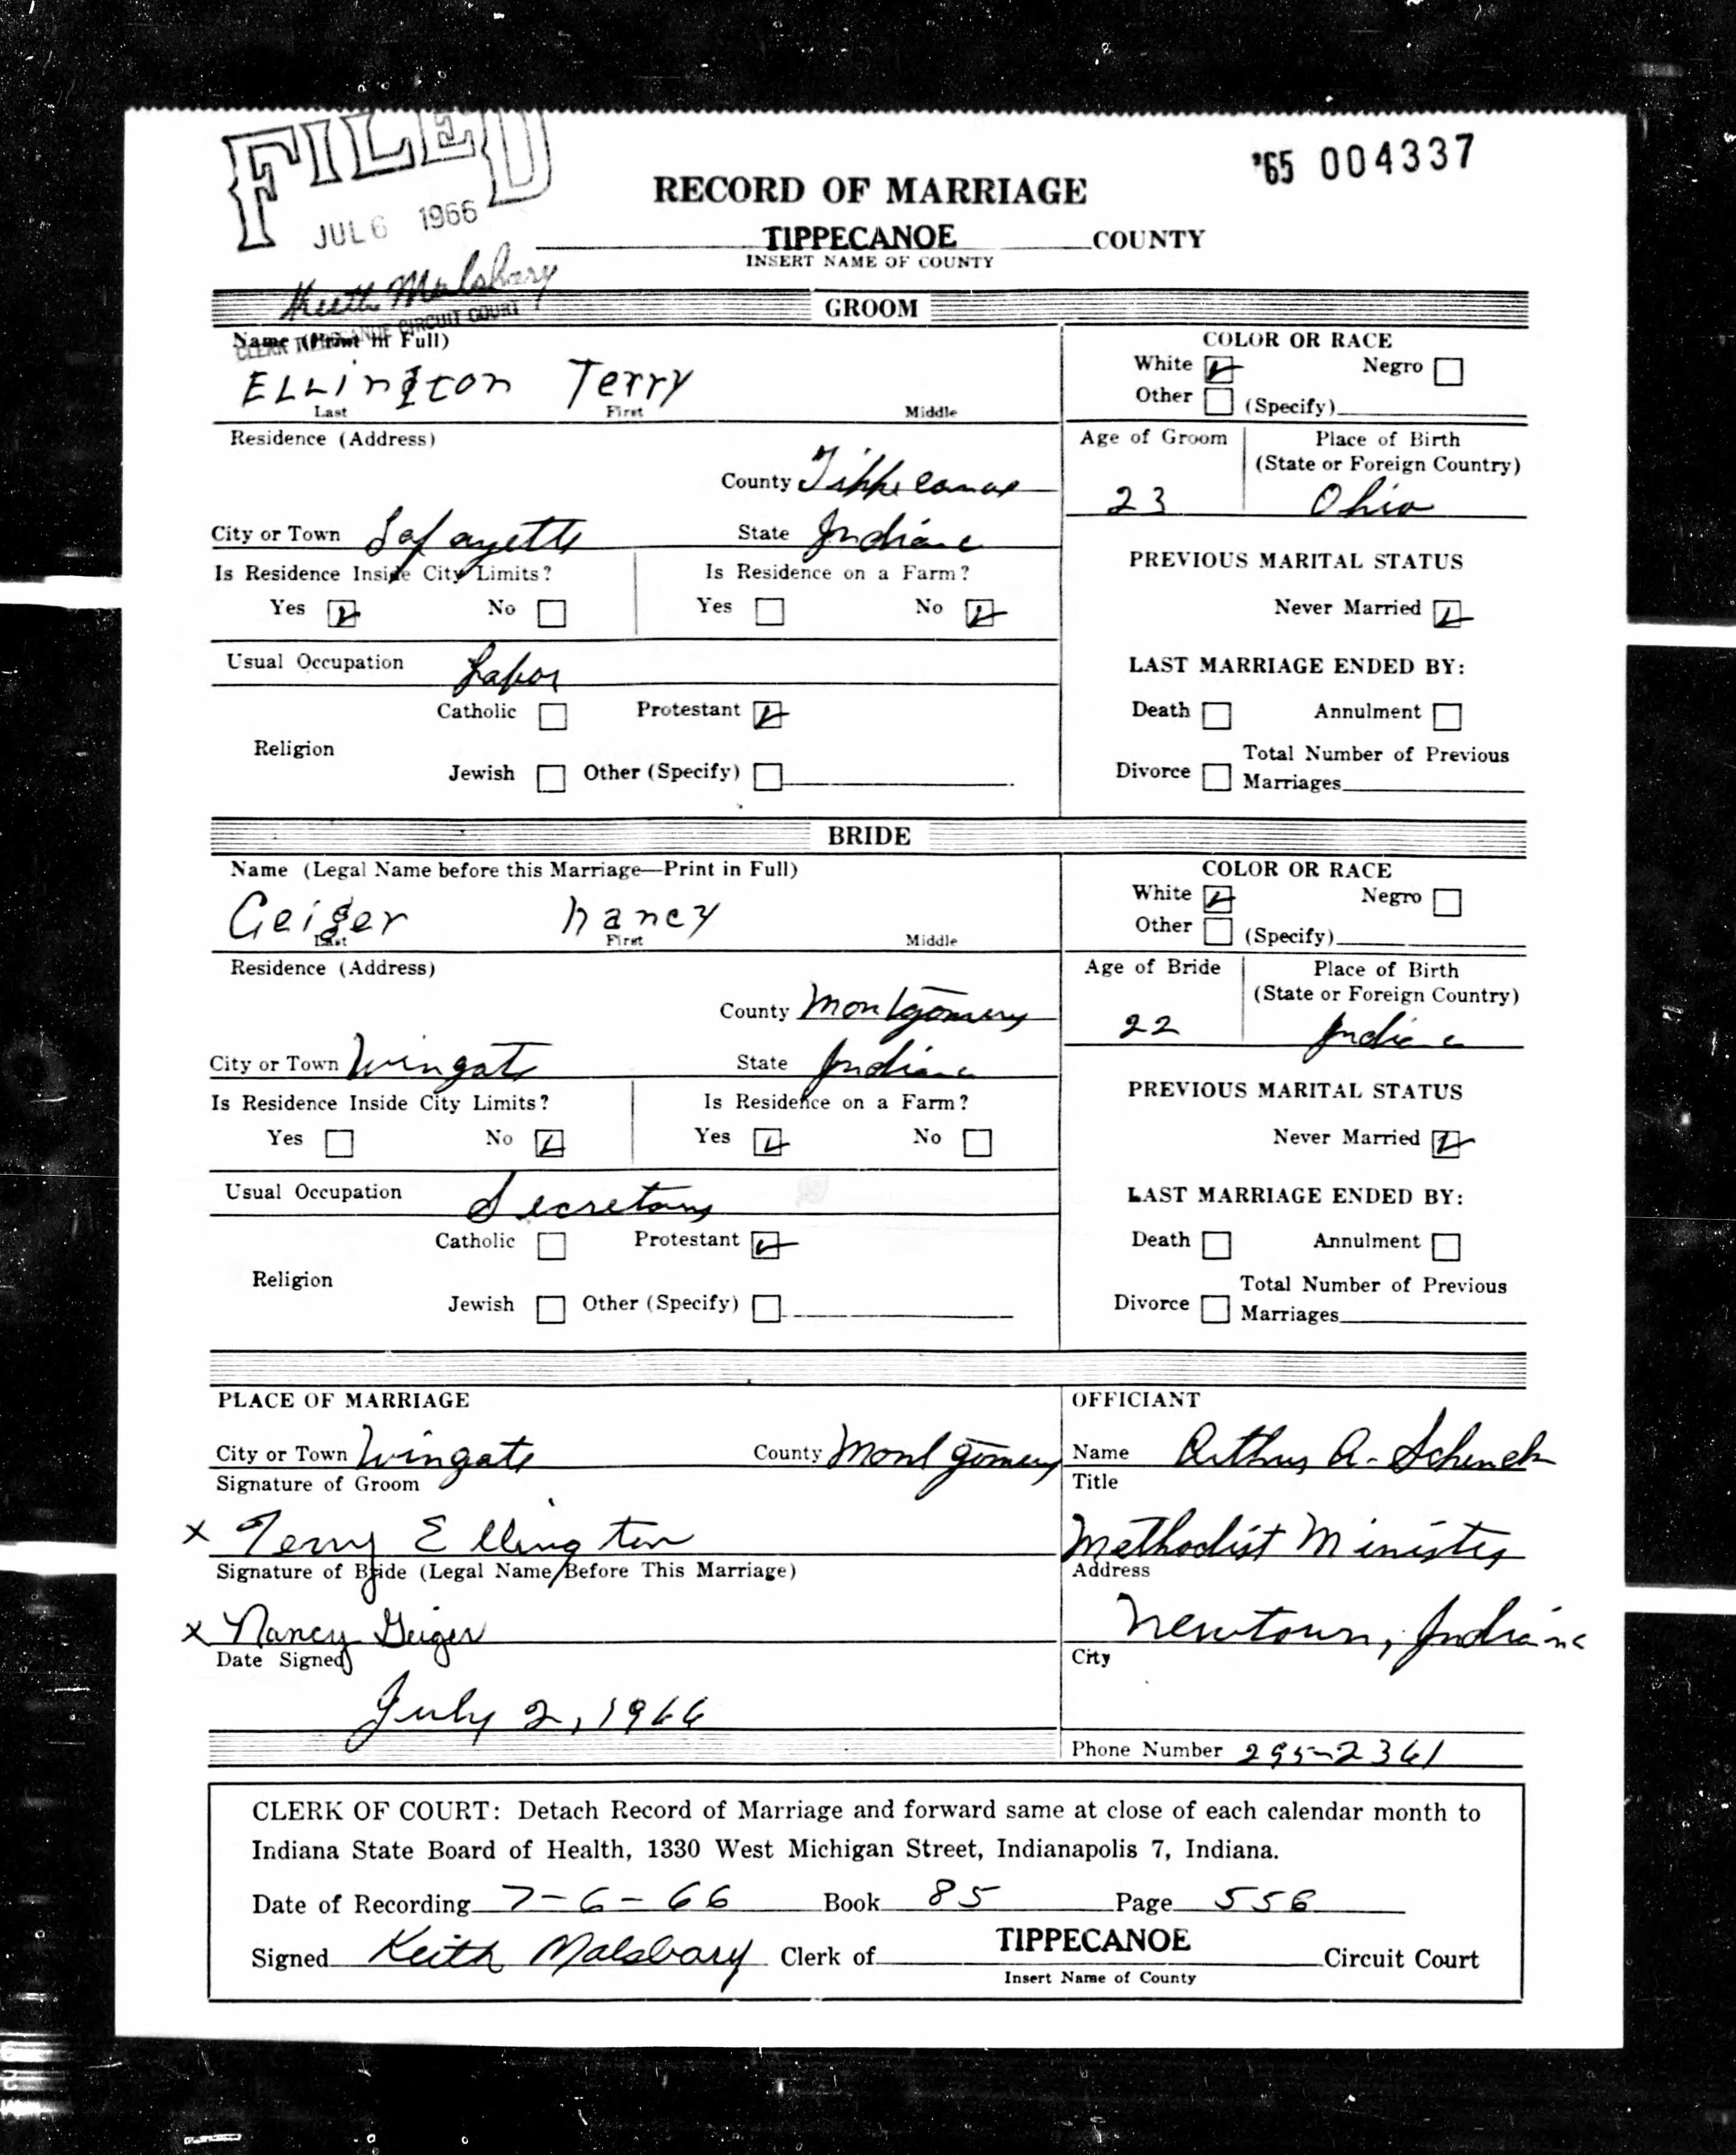 FILED
'65 004337
JUL 6 1966
RECORD OF MARRIAGE
TIPPECANOE COUNTY
INSERT NAME OF COUNTY
Keith Malsbary
CLERK TIPPECANOE CIRCUIT COURT
GROOM
Name (Print in Full)
ELLington Terry
Last First Middle
COLOR OR RACE
White Negro
Other (Specify)
Residence (Address)
County Tippecanoe
City or Town Lafayette State Indiana
Age of Groom Place of Birth
(State or Foreign Country)
23 Ohio
Is Residence Inside City Limits? Is Residence on a Farm?
Yes No Yes No
PREVIOUS MARITAL STATUS
Never Married
Usual Occupation Labor
LAST MARRIAGE ENDED BY:
Catholic Protestant
Religion
Jewish Other (Specify)
Death Annulment
Total Number of Previous
Divorce Marriages
BRIDE
Name (Legal Name before this Marriage—Print in Full)
Geiger nancy
Last First Middle
COLOR OR RACE
White Negro
Other (Specify)
Residence (Address)
County Montgomery
City or Town Wingate State Indiana
Age of Bride Place of Birth
(State or Foreign Country)
22 Indiana
Is Residence Inside City Limits? Is Residence on a Farm?
Yes No Yes No
PREVIOUS MARITAL STATUS
Never Married
Usual Occupation Secretary
LAST MARRIAGE ENDED BY:
Catholic Protestant
Religion
Jewish Other (Specify)
Death Annulment
Total Number of Previous
Divorce Marriages
PLACE OF MARRIAGE
City or Town Wingate County Montgomery
Signature of Groom
x Terry Ellington
Signature of Bride (Legal Name Before This Marriage)
x Nancy Geiger
Date Signed
July 2, 1966
OFFICIANT
Name Arthur A. Schenck
Title
Methodist Minister
Address
Newtown, Indiana
City
Phone Number 295-2361
CLERK OF COURT: Detach Record of Marriage and forward same at close of each calendar month to
Indiana State Board of Health, 1330 West Michigan Street, Indianapolis 7, Indiana.
Date of Recording 7-6-66 Book 85 Page 556
Signed Keith Malsbary Clerk of TIPPECANOE Circuit Court
Insert Name of County